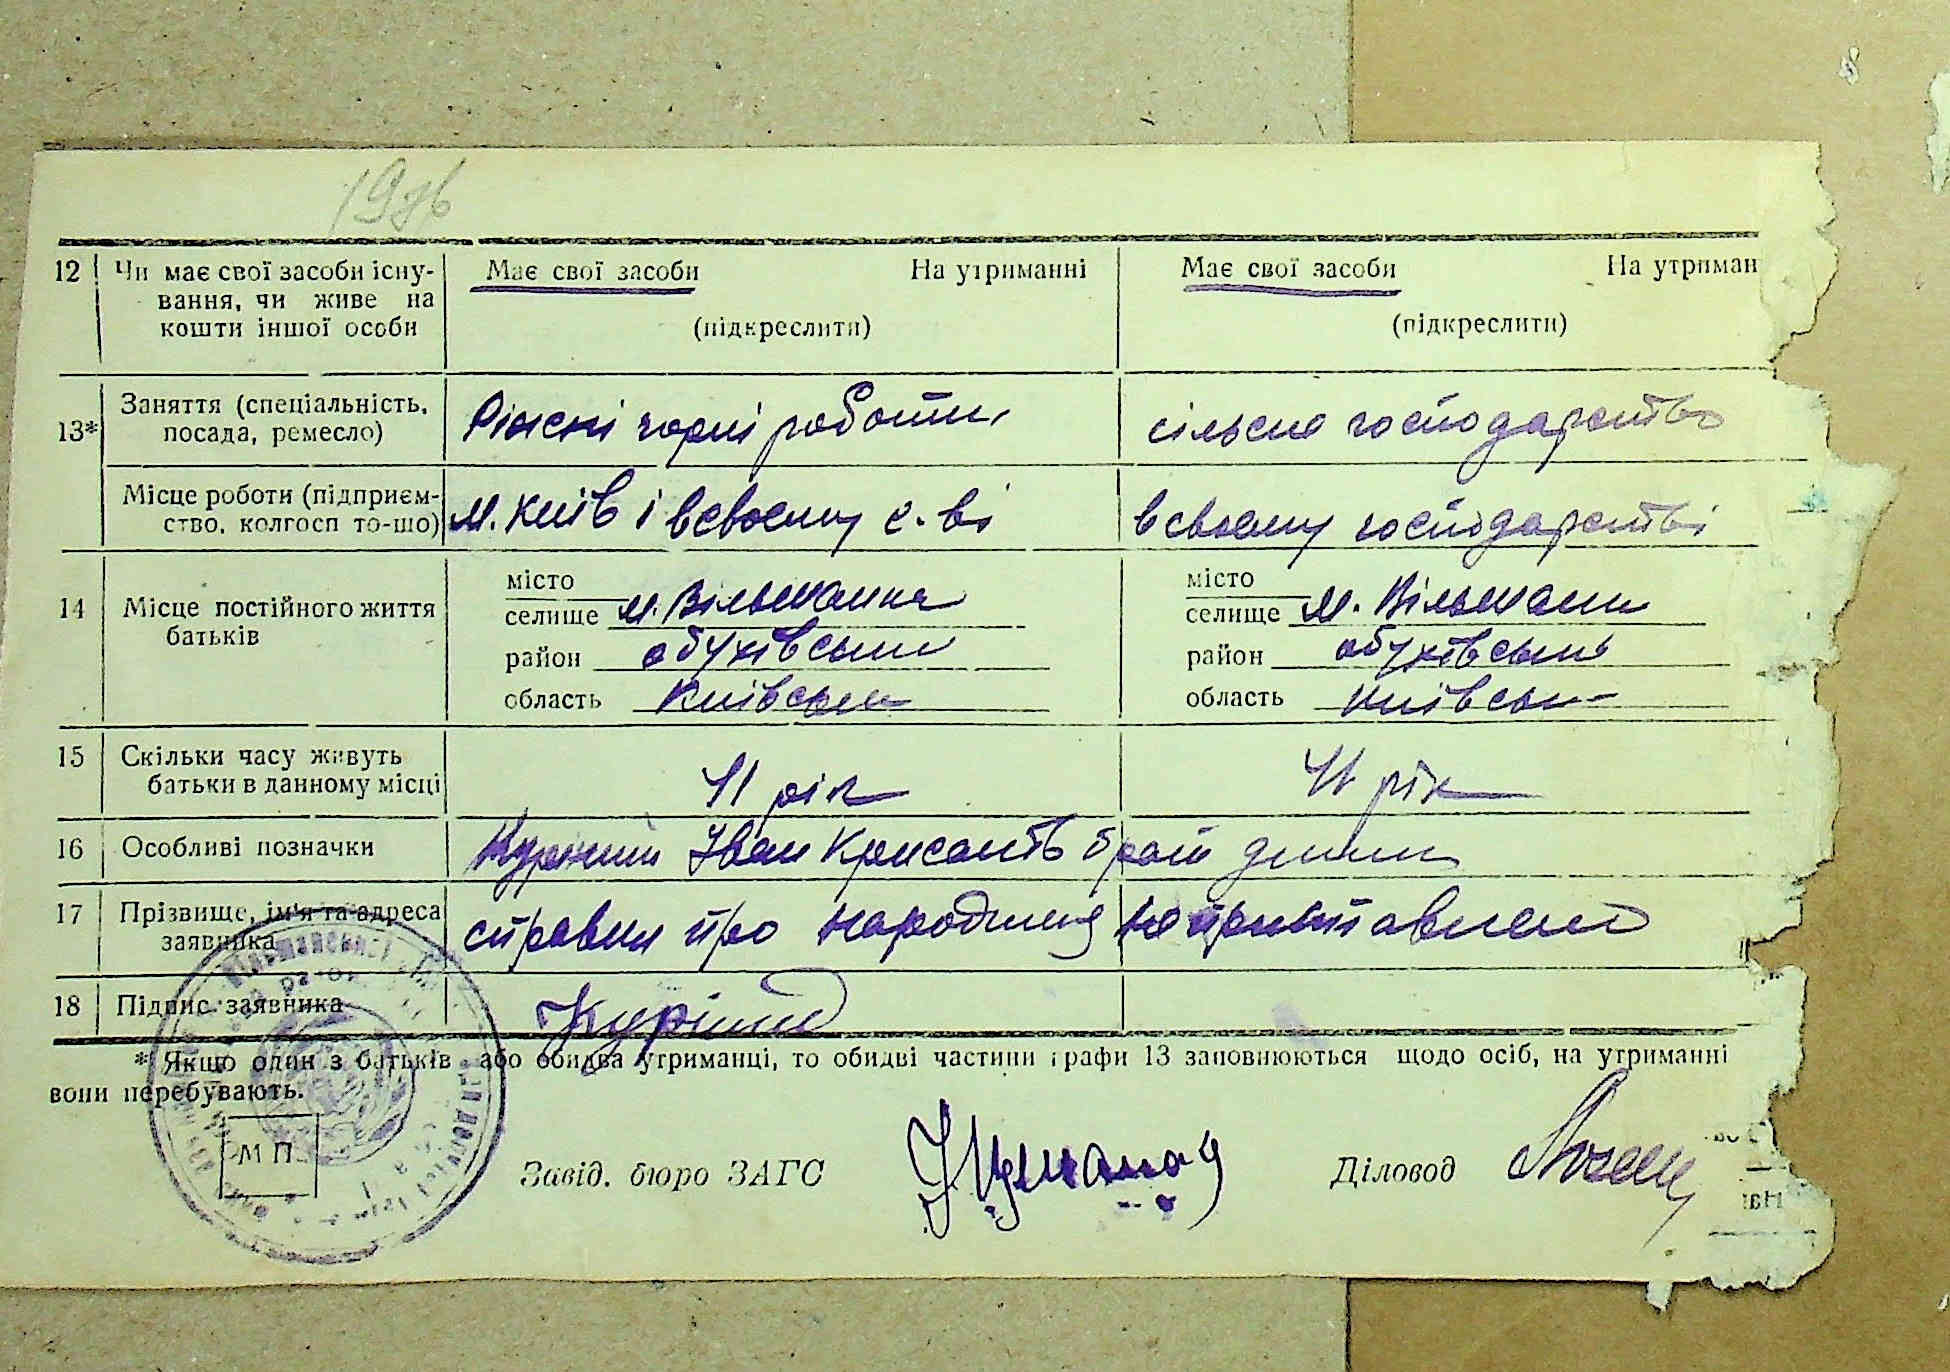 12 Чи має свої засоби існу- Має свої засоби На утриманні Має свої засоби На утриман
вання, чи живе на
кошти іншої особи (підкреслити) (підкреслити)
13* Заняття (спеціальність, посада, ремесло) Ріжні чорні роботи сільське господарство
Місце роботи (підприєм-
ство, колгосп то-що) м. Київ і в своєму с. ві в своєму господарстві
14 Місце постійного життя батьків
місто місто
селище м. Вільшанка селище м. Вільшани
район обухівський район обухівський
область Київська область Київськ
15 Скільки часу живуть
батьки в данному місці 41 рік 41 рік
16 Особливі позначки Іван Крисантів брат
17 Прізвище, ім'я та адреса
заявника справки про народження не приставлено
18 Підпис заявника
* Якщо один з батьків або обидва утриманці, то обидві частини графи 13 заповнюються щодо осіб, на утриманні
вони перебувають.
М П
Завід. бюро ЗАГС Діловод